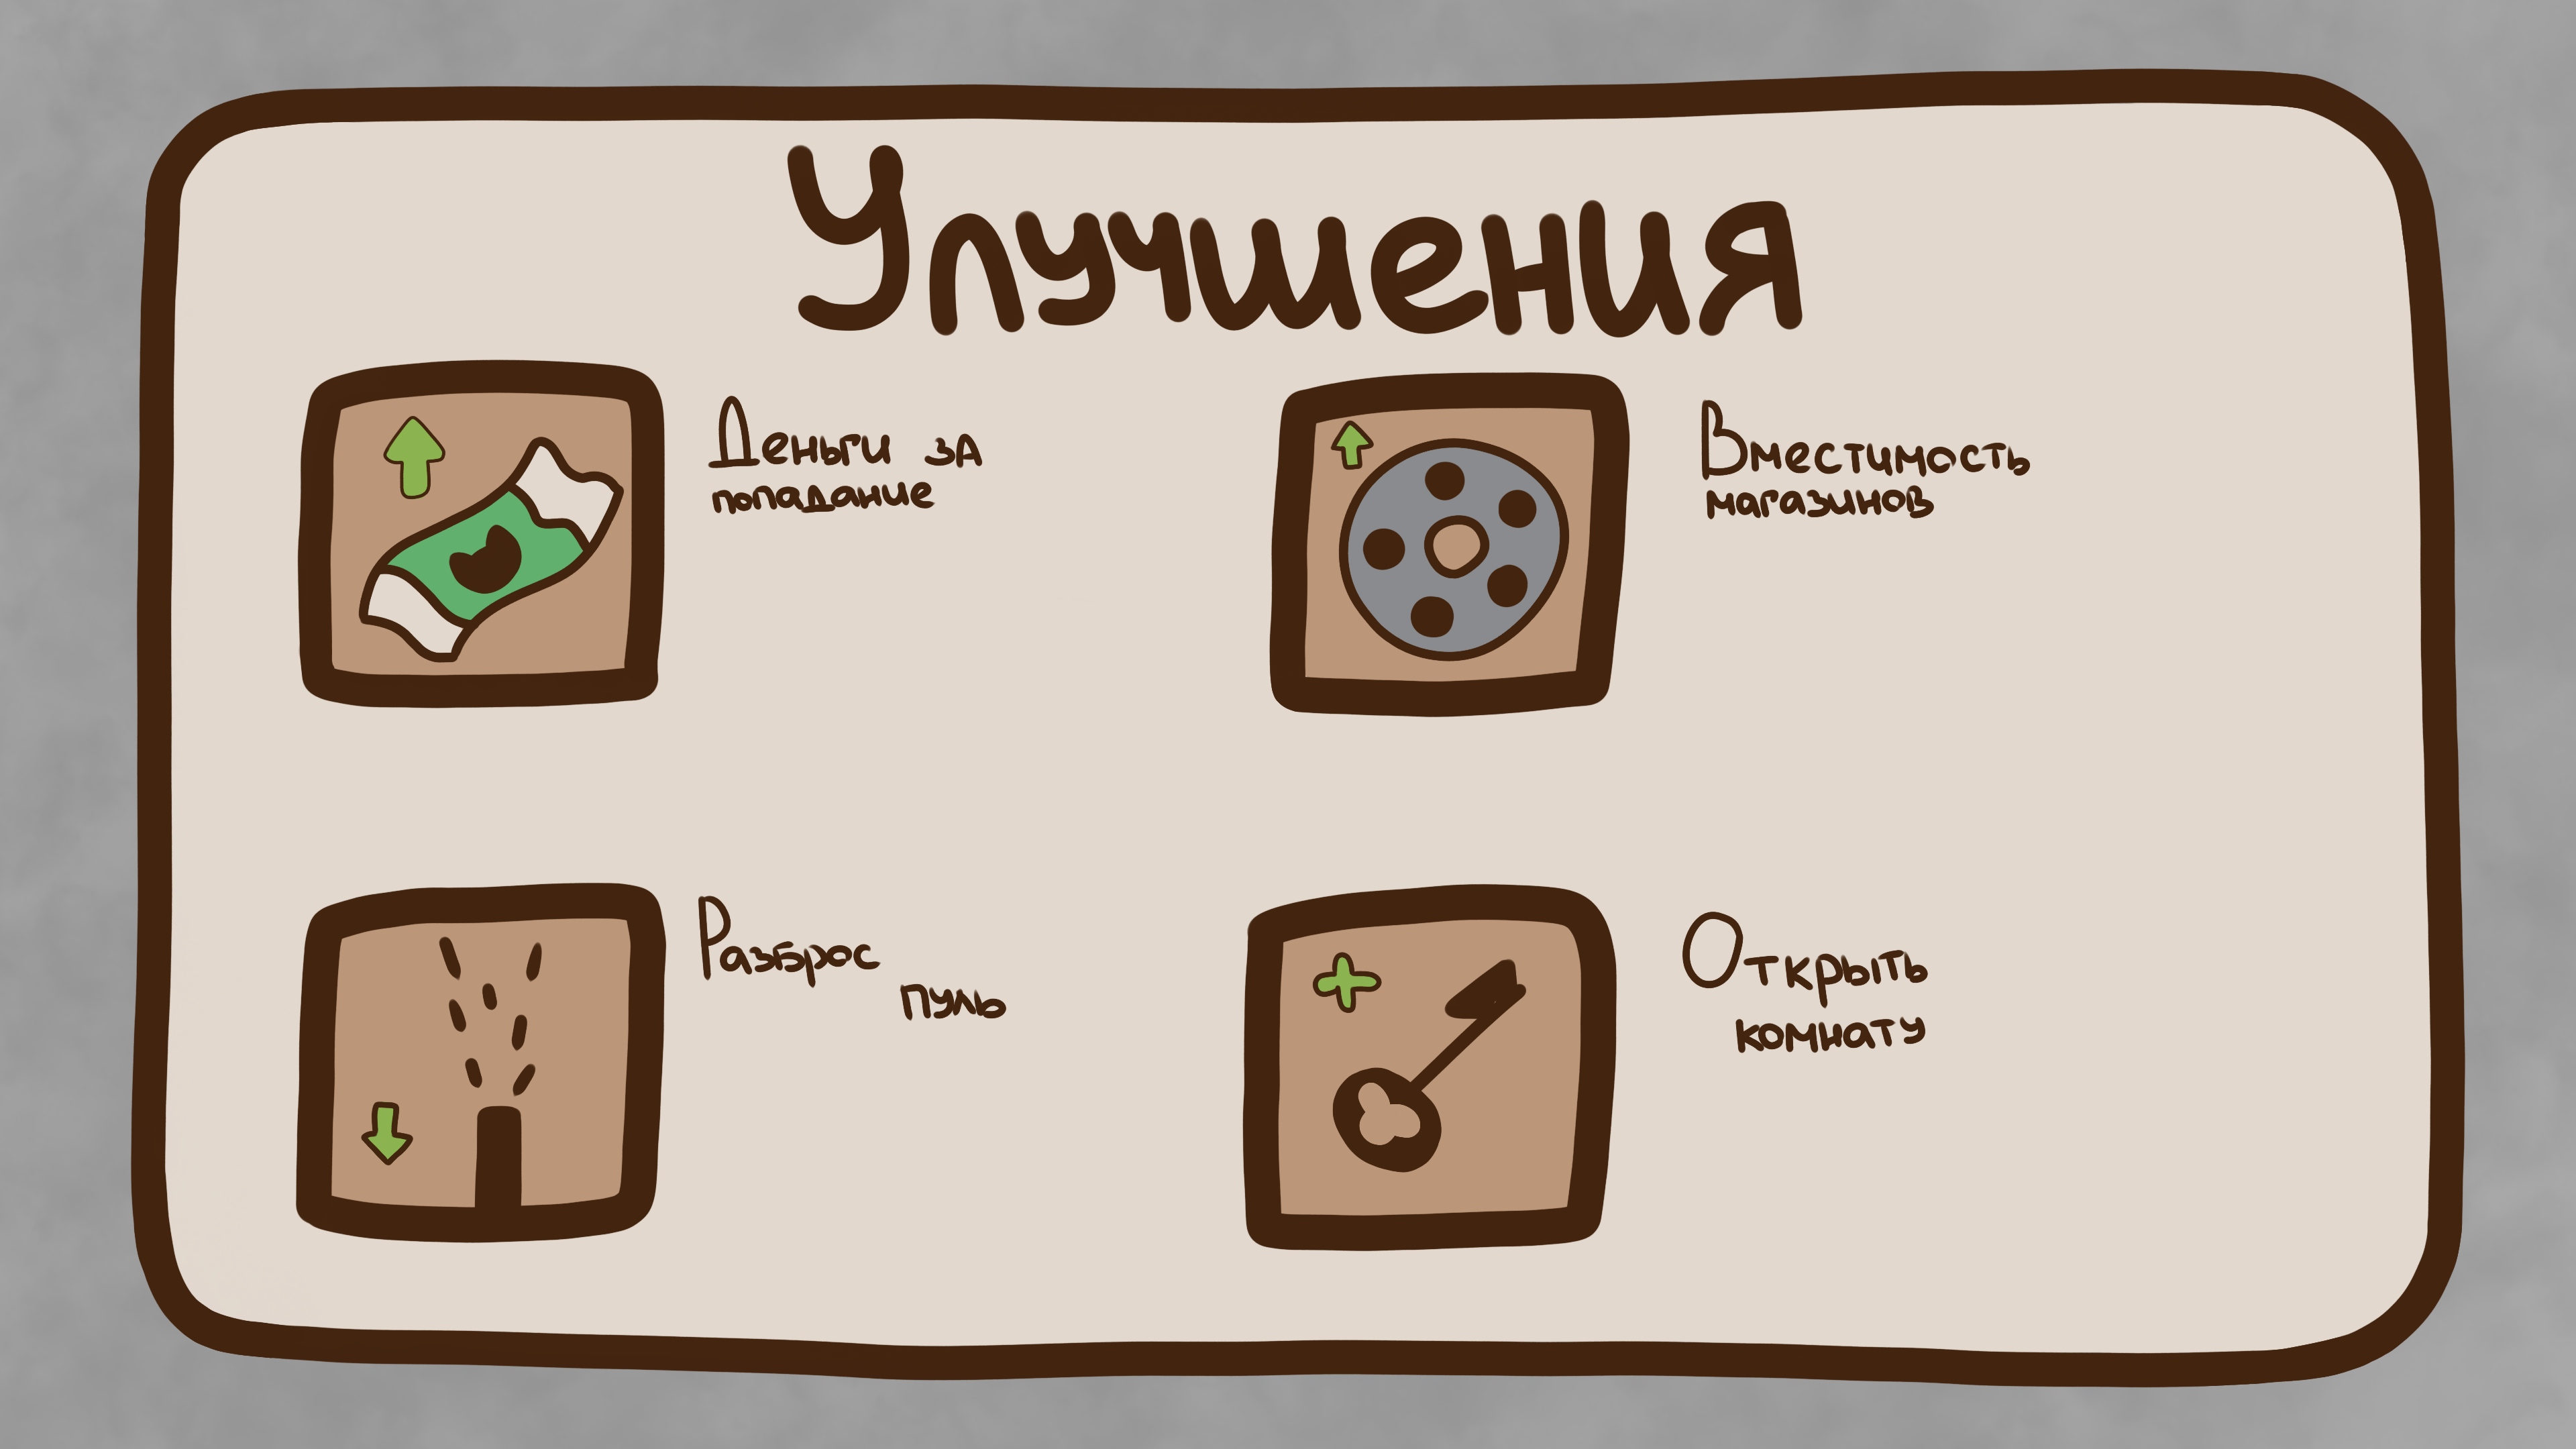 Улучшения
Деньги за
попадание
Вместимость
магазинов
Разброс
пуль
Открыть
комнату